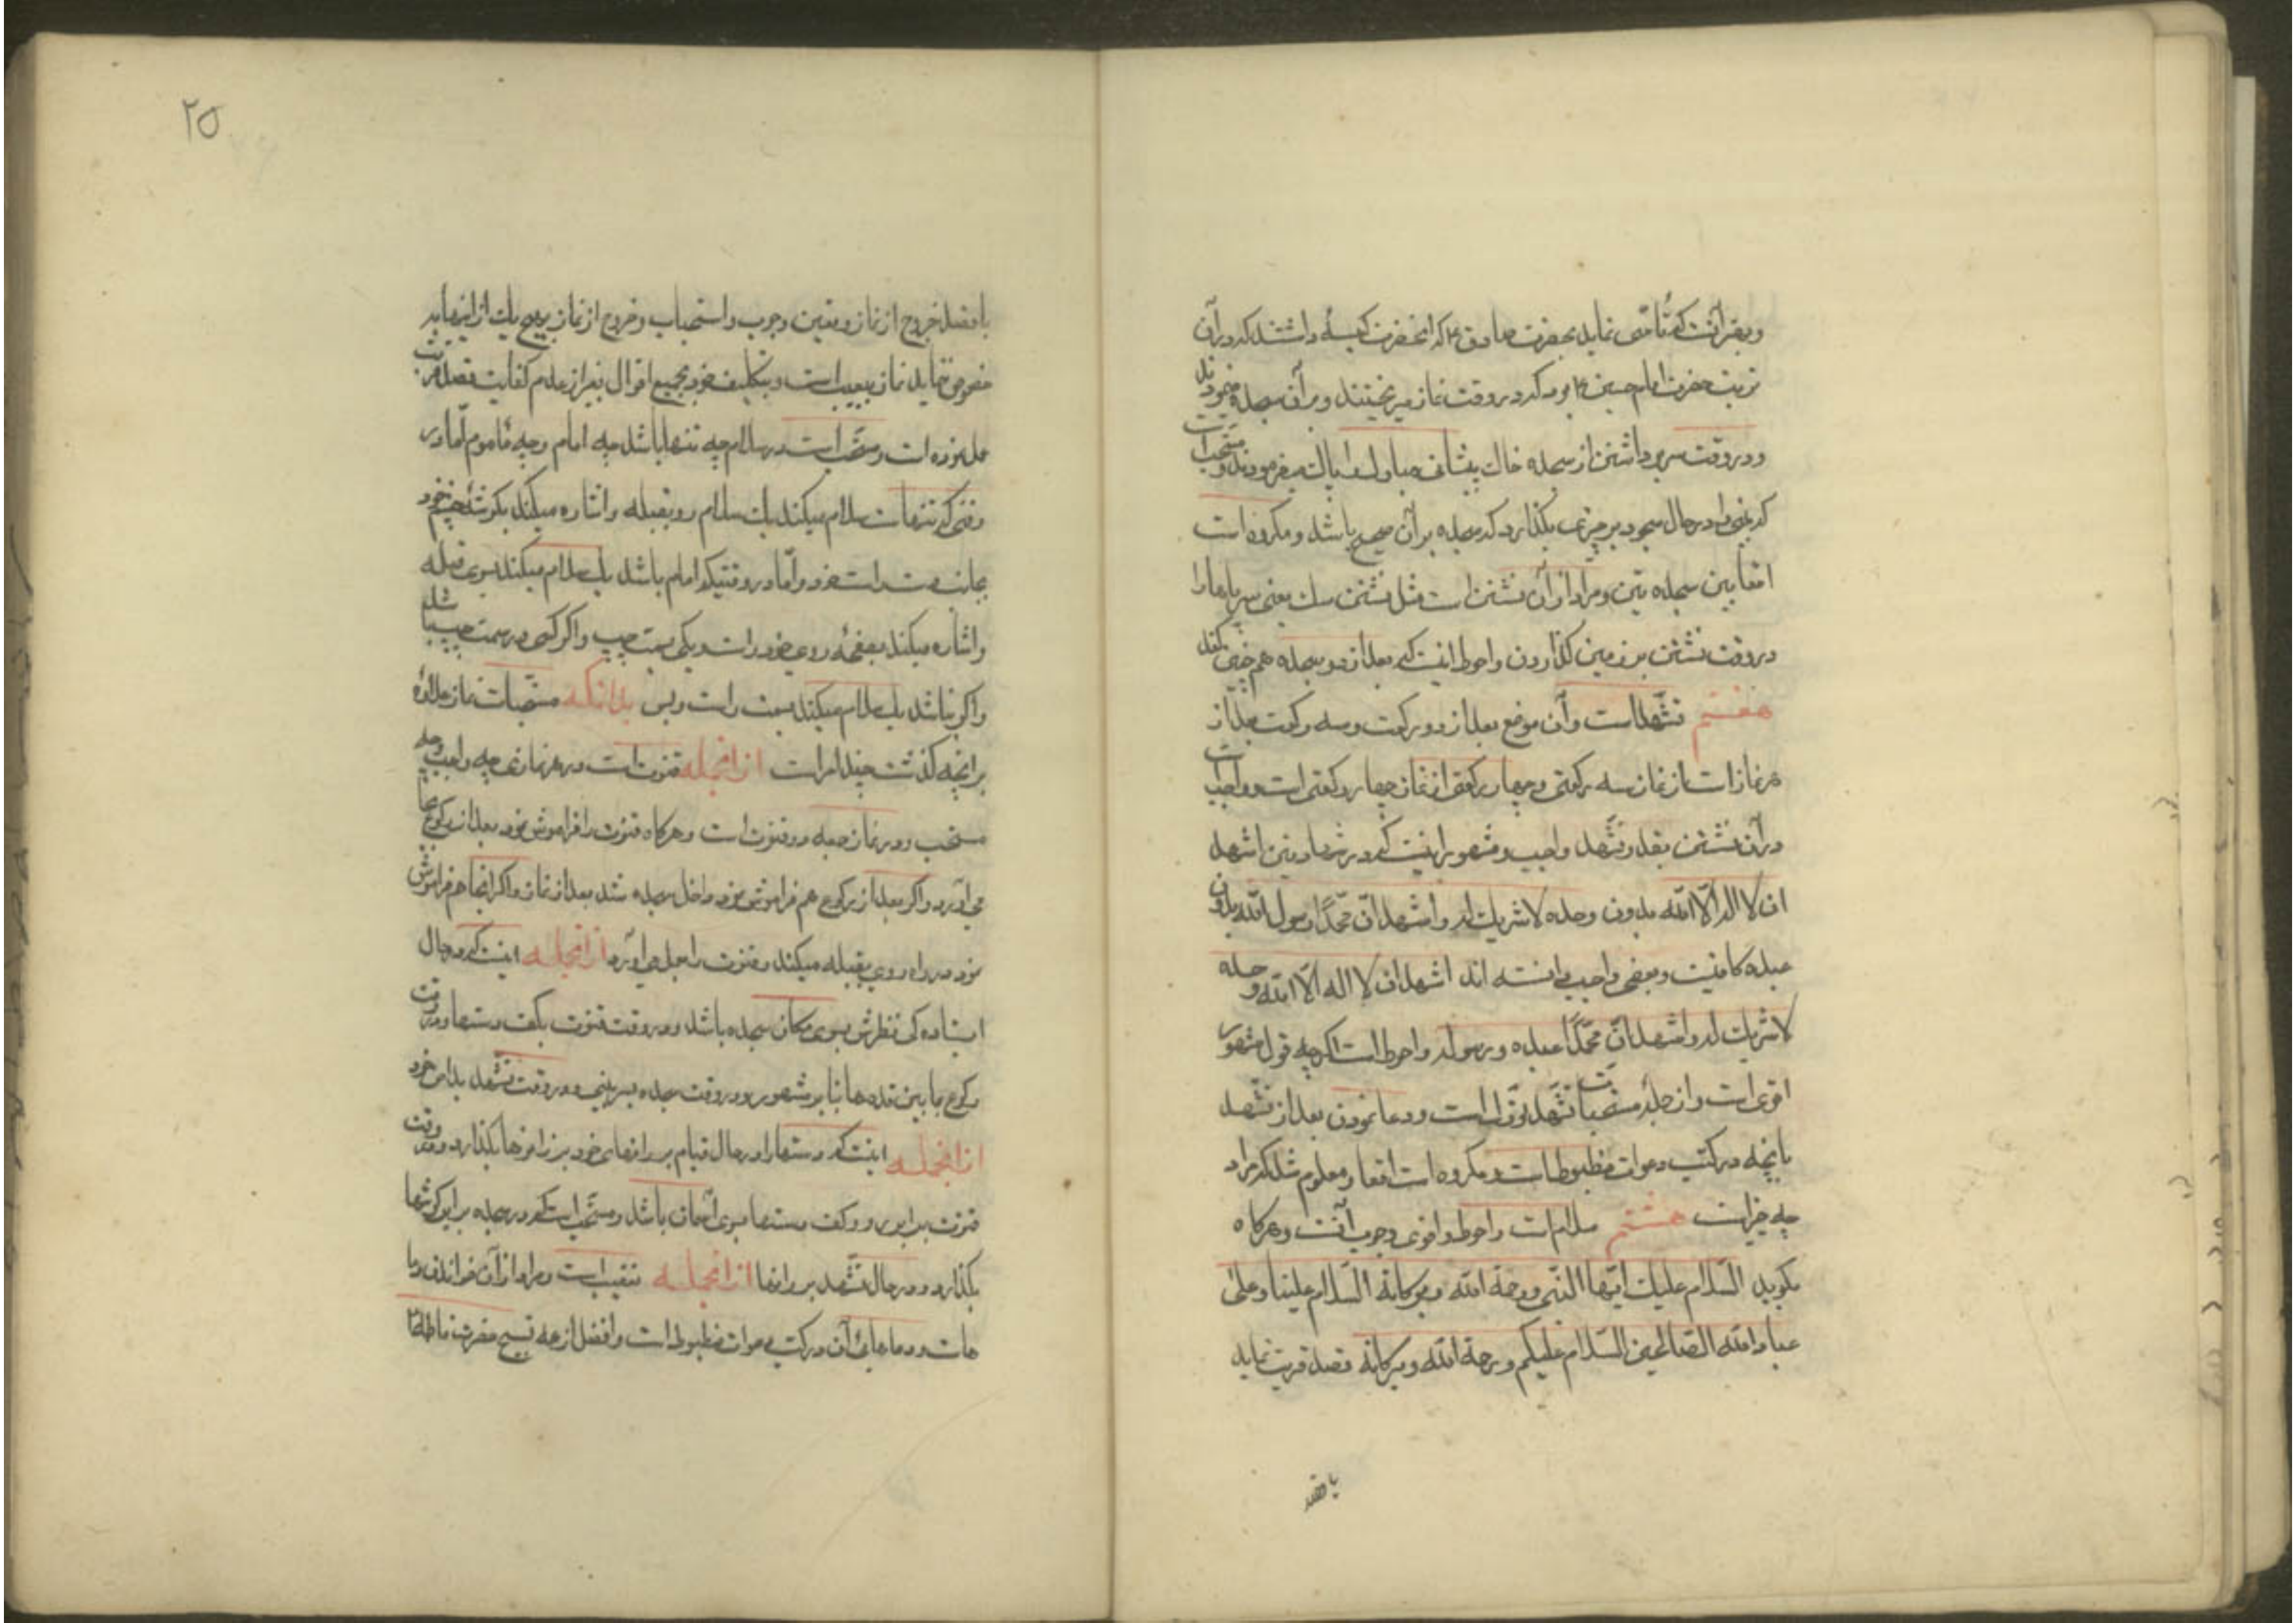 و بهتر آنست که تأسی نماید بحضرت صادق ع که آنحضرت کیسهٔ داشتند که در آن
تربت حضرت امام حسین ع بود که در وقت نماز میریختند و بر آن سجده مینمودند
و در وقت سر برداشتن از سجده خاک پیشانی مبارک را پاک میفرمودند و مستحب است
که بینی را در حال سجود بر چیزی بگذارد که سجده بر آن صحیح باشد و مکروه است
اقعا بین سجده تین و مراد از آن نشستن است مثل نشستن سک یعنی سر پاها را
در وقت نشستن بر زمین گذاردن و احوط اینست که بعد از دو سجده هم چنین نکند
هفتم تشهد است و آن موضع بعد از دو رکعت و سه رکعت بعد از
هر نماز است از نماز سه رکعتی و چهار رکعتی از نماز چهار رکعتی است و واجب است
در آن نشستن بقدر تشهد واجب و مشهور اینست که در شهادتین اشهد
ان لا اله الا الله بدون وحده لا شریک له و اشهد ان محمدا رسول الله بدون
عبده کافیست و بعضی واجب دانسته اند اشهد ان لا اله الا الله وحده
لا شریک له و اشهد ان محمدا عبده و رسوله و احوط است اگرچه قول مشهور
اقوی است و از جمله مستحبات تشهد تورّک است و دعا نمودن بعد از تشهد
بانچه در کتب دعوات مظبوط است و مکروه است اقعا و معلوم شد که مراد
چه چیز است هشتم سلام است و احوط و اقوی وجوب آنست و هرکاه
بگوید السلام علیک ایها النبی و رحمة الله و برکاته السلام علینا و علی
عباد الله الصالحین السلام علیکم و رحمة الله و برکاته قصد قربت نماید
با قصد
۲۵
با قصد خروج از نماز و تعین وجوب و استحباب و خروج از نماز بهیچ یک از اینها بد
خصوص ننماید نماز بیعیب است و بتکلیف خود بجمیع اقوال بغیر از عدم کفایت قصد قربت
عمل نموده است و مستحب است در سلام چه تنها باشد چه امام و چه مأموم اما در
وقتی که تنها است سلام میکند یک سلام رو بقبله و اشاره میکند بکوشهٔ چشم خود
بجانب دست راست خود و اما در وقتیکه امام باشد یک سلام میکند بسوی قبله
و اشاره میکند بصفحهٔ روی خود راست و یکی بسمت چپ و اگر کسی در سمت چپ باشد
و اگر نباشد یک سلام میکند بسمت راست و بس بدانکه مستحبات نماز علاوه
بر انچه گذشت چند امر است از انجمله قنوت است در هر نمازی چه واجب و چه
مستحب و در نماز جمعه دو قنوت است و هرکاه قنوت را فراموش نمود بعد از رکوع بجا
می آورد و اگر بعد از رکوع هم فراموش نمود و داخل سجده شد بعد از نماز و اگر انجا هم فراموش
نمود در راه روی بقبله میکند و قنوت را بعمل می آورد از انجمله اینست که در حال
ایستاده کی نظرش بسوی مکان سجده باشد و در وقت قنوت بکف دستها و در وقت
رکوع ما بین قدمها بنا بر مشهور و در وقت سجده بسر بینی و در وقت تشهد بدامن خود
از انجمله اینست که دستها را در حال قیام بر رانهای خود بر زانوها بگذارد و در وقت
قنوت برابر رو و کف دستها بسوی آسمان باشد و مستحب است که در سجده برابر کوشها
بگذارد و در حال تشهد بر رانها از انجمله تعقیب است و مراد از آن خواندن دعا
هاست و دعاهای آن در کتب دعوات مظبوط است و افضل از همه تسبیح حضرت فاطمه ع